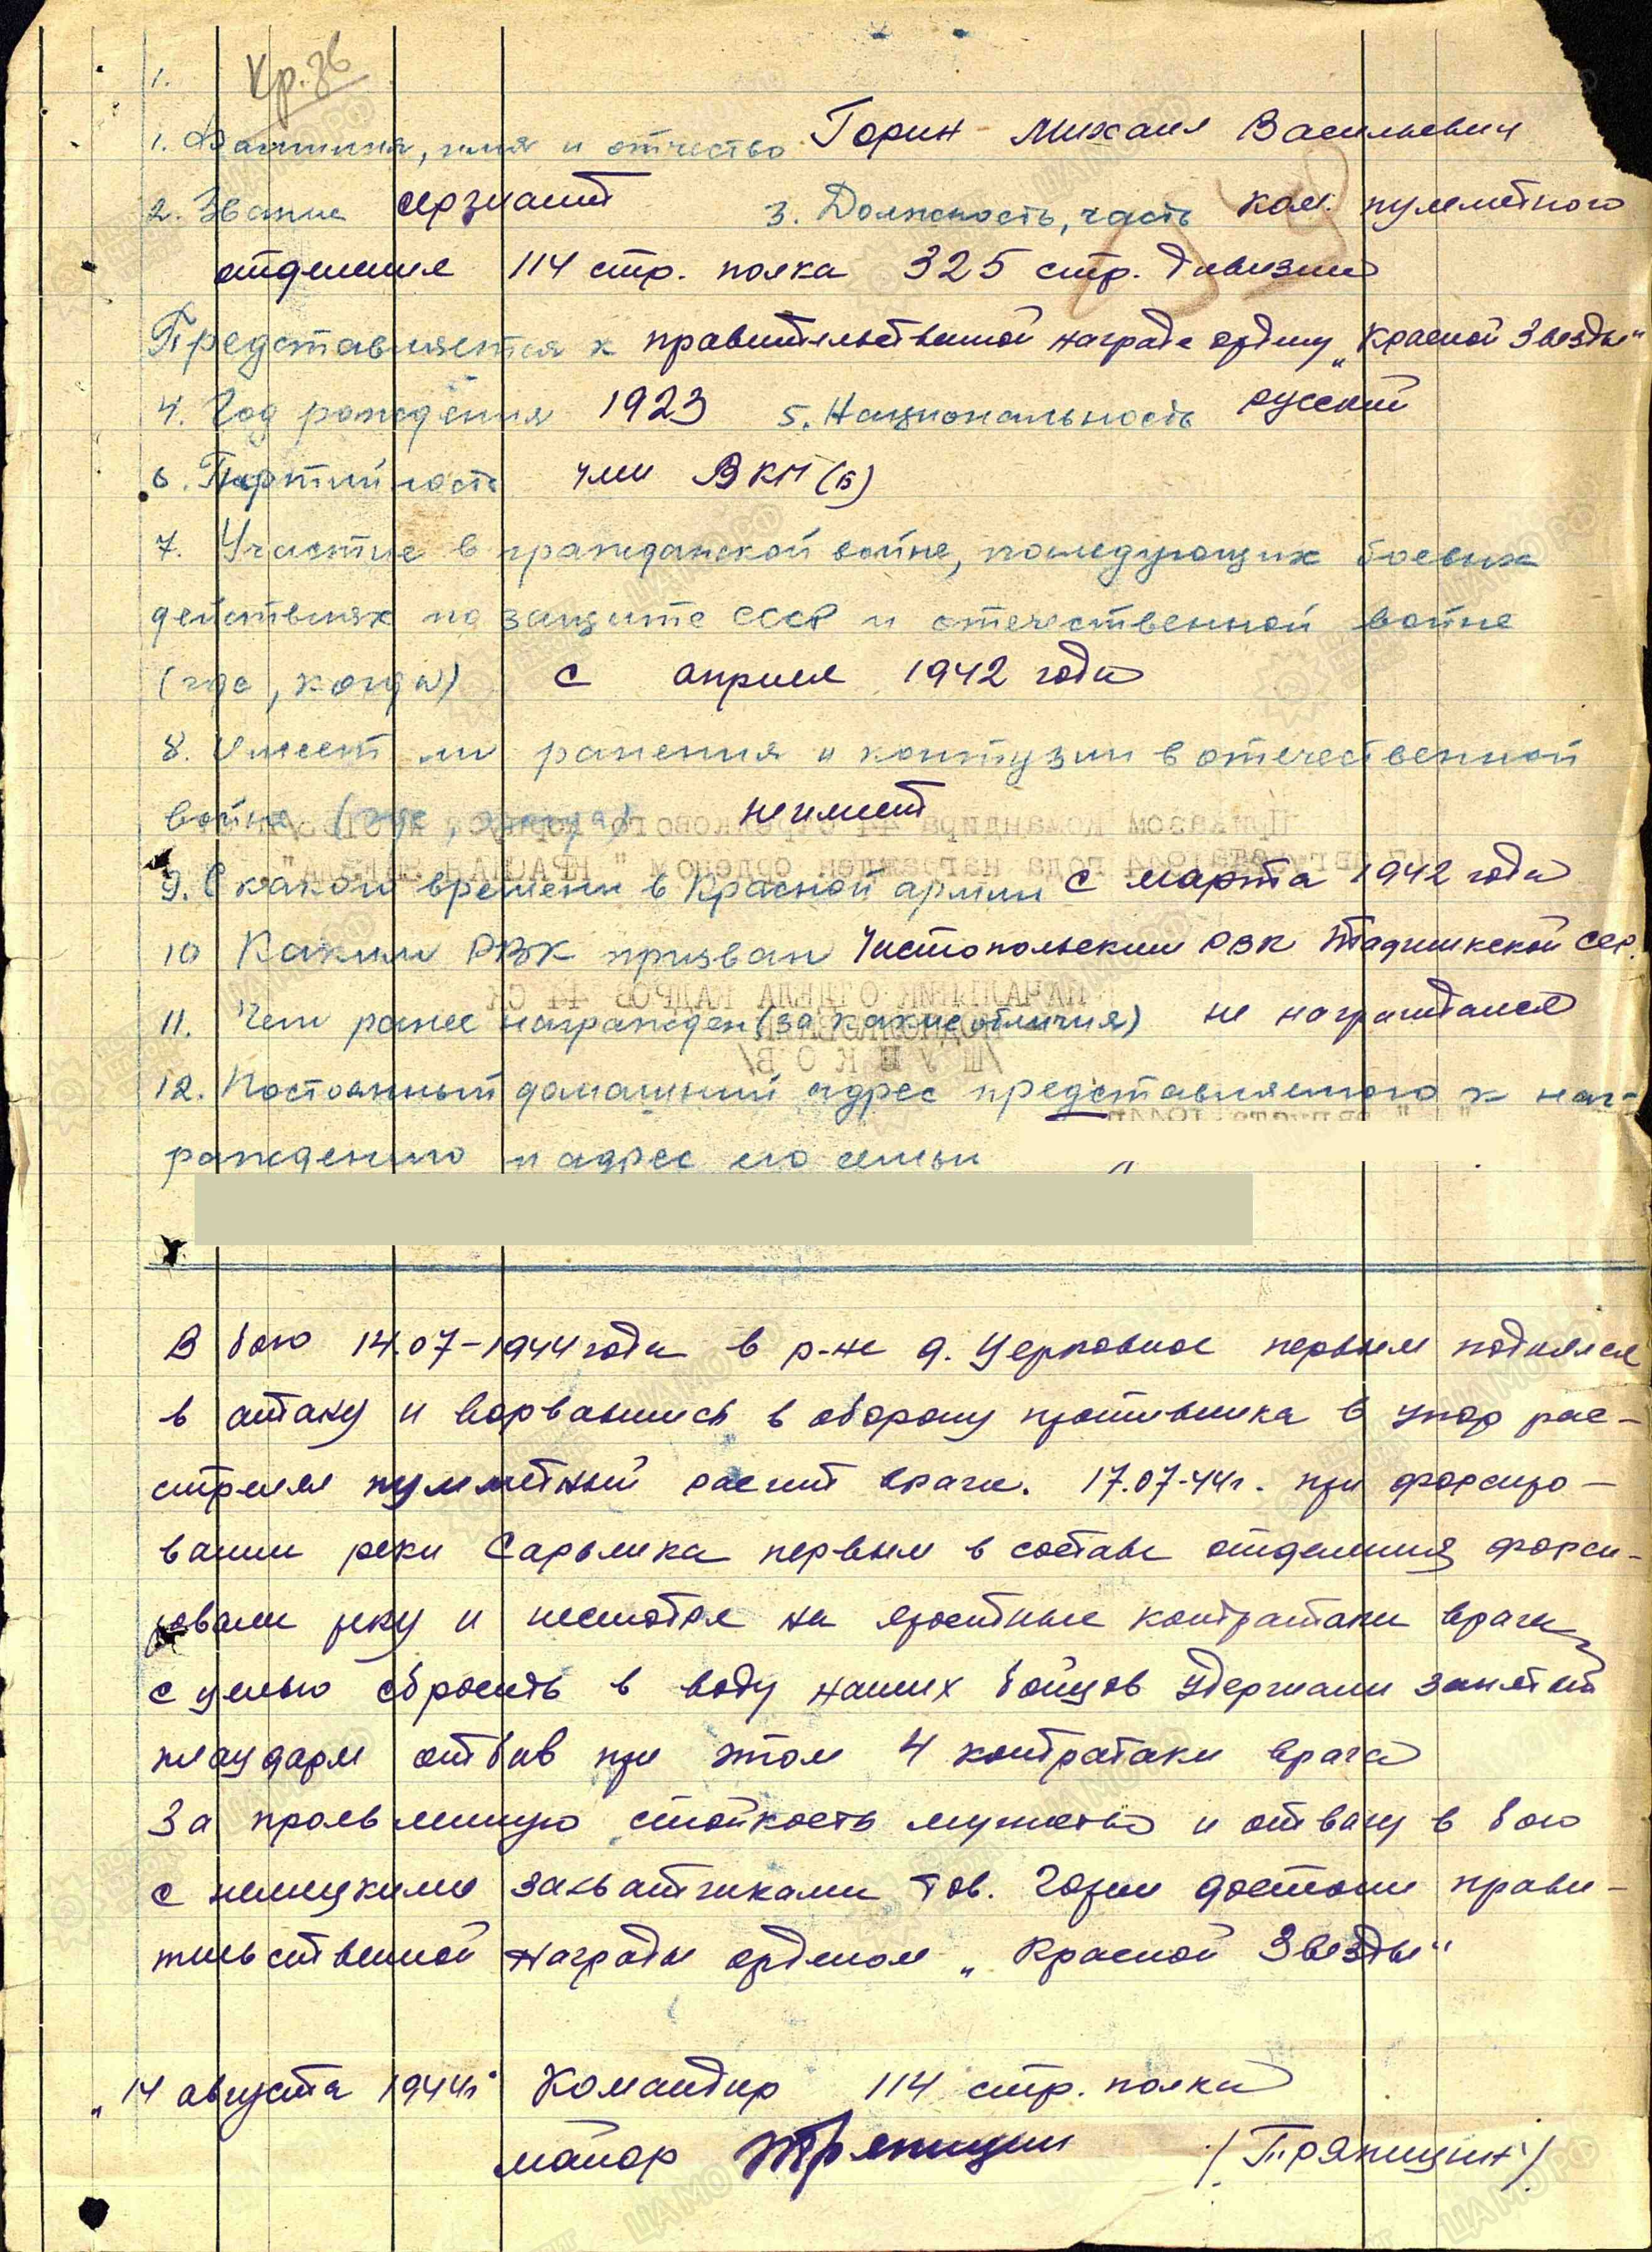 Кр. Зв
1.
1. Фамилия, имя и отчество Горин Михаил Васильевич
2. Звание сержант 3. Должность, часть ком. пулеметного
отделения 114 стр. полка 325 стр. дивизии
Представляется к правительственной награде ордену „Красной Звезды"
4. Год рождения 1923 5. Национальность русский
6. Партийность член ВКП(б)
7. Участие в гражданской войне, последующих боевых
действиях по защите СССР и отечественной войне
(где, когда) с апреля 1942 года
8. Имеет ли ранения и контузии в отечественной
войне (где, когда) не имеет
9. С какого времени в Красной армии с марта 1942 года
10 Каким РВК призван Чистопольским РВК ССР.
11. Чем ранее награжден (за какие отличия) не награждался
12. Постоянный домашний адрес представляемого к наг-
раждению и адрес его семьи
В бою 14.07-1944 года в р-не д. первым поднялся
в атаку и ворвавшись в оборону противника в упор рас-
стрелял пулеметный расчет врага. 17.07-44г. при форсиро-
вании реки первым в составе отделения форси-
ровали реку и несмотря на яростные контратаки врага
с целью сбросить в воду наших бойцов удержали занятый
плацдарм отбив при этом 4 контратаки врага
За проявленную стойкость мужество и отвагу в бою
с немецкими захватчиками тов. Горин достоин прави-
тельственной награды орденом „Красной Звезды"
„14 августа 1944г" Командир 114 стр. полка
майор Тряпицин /Тряпицин/